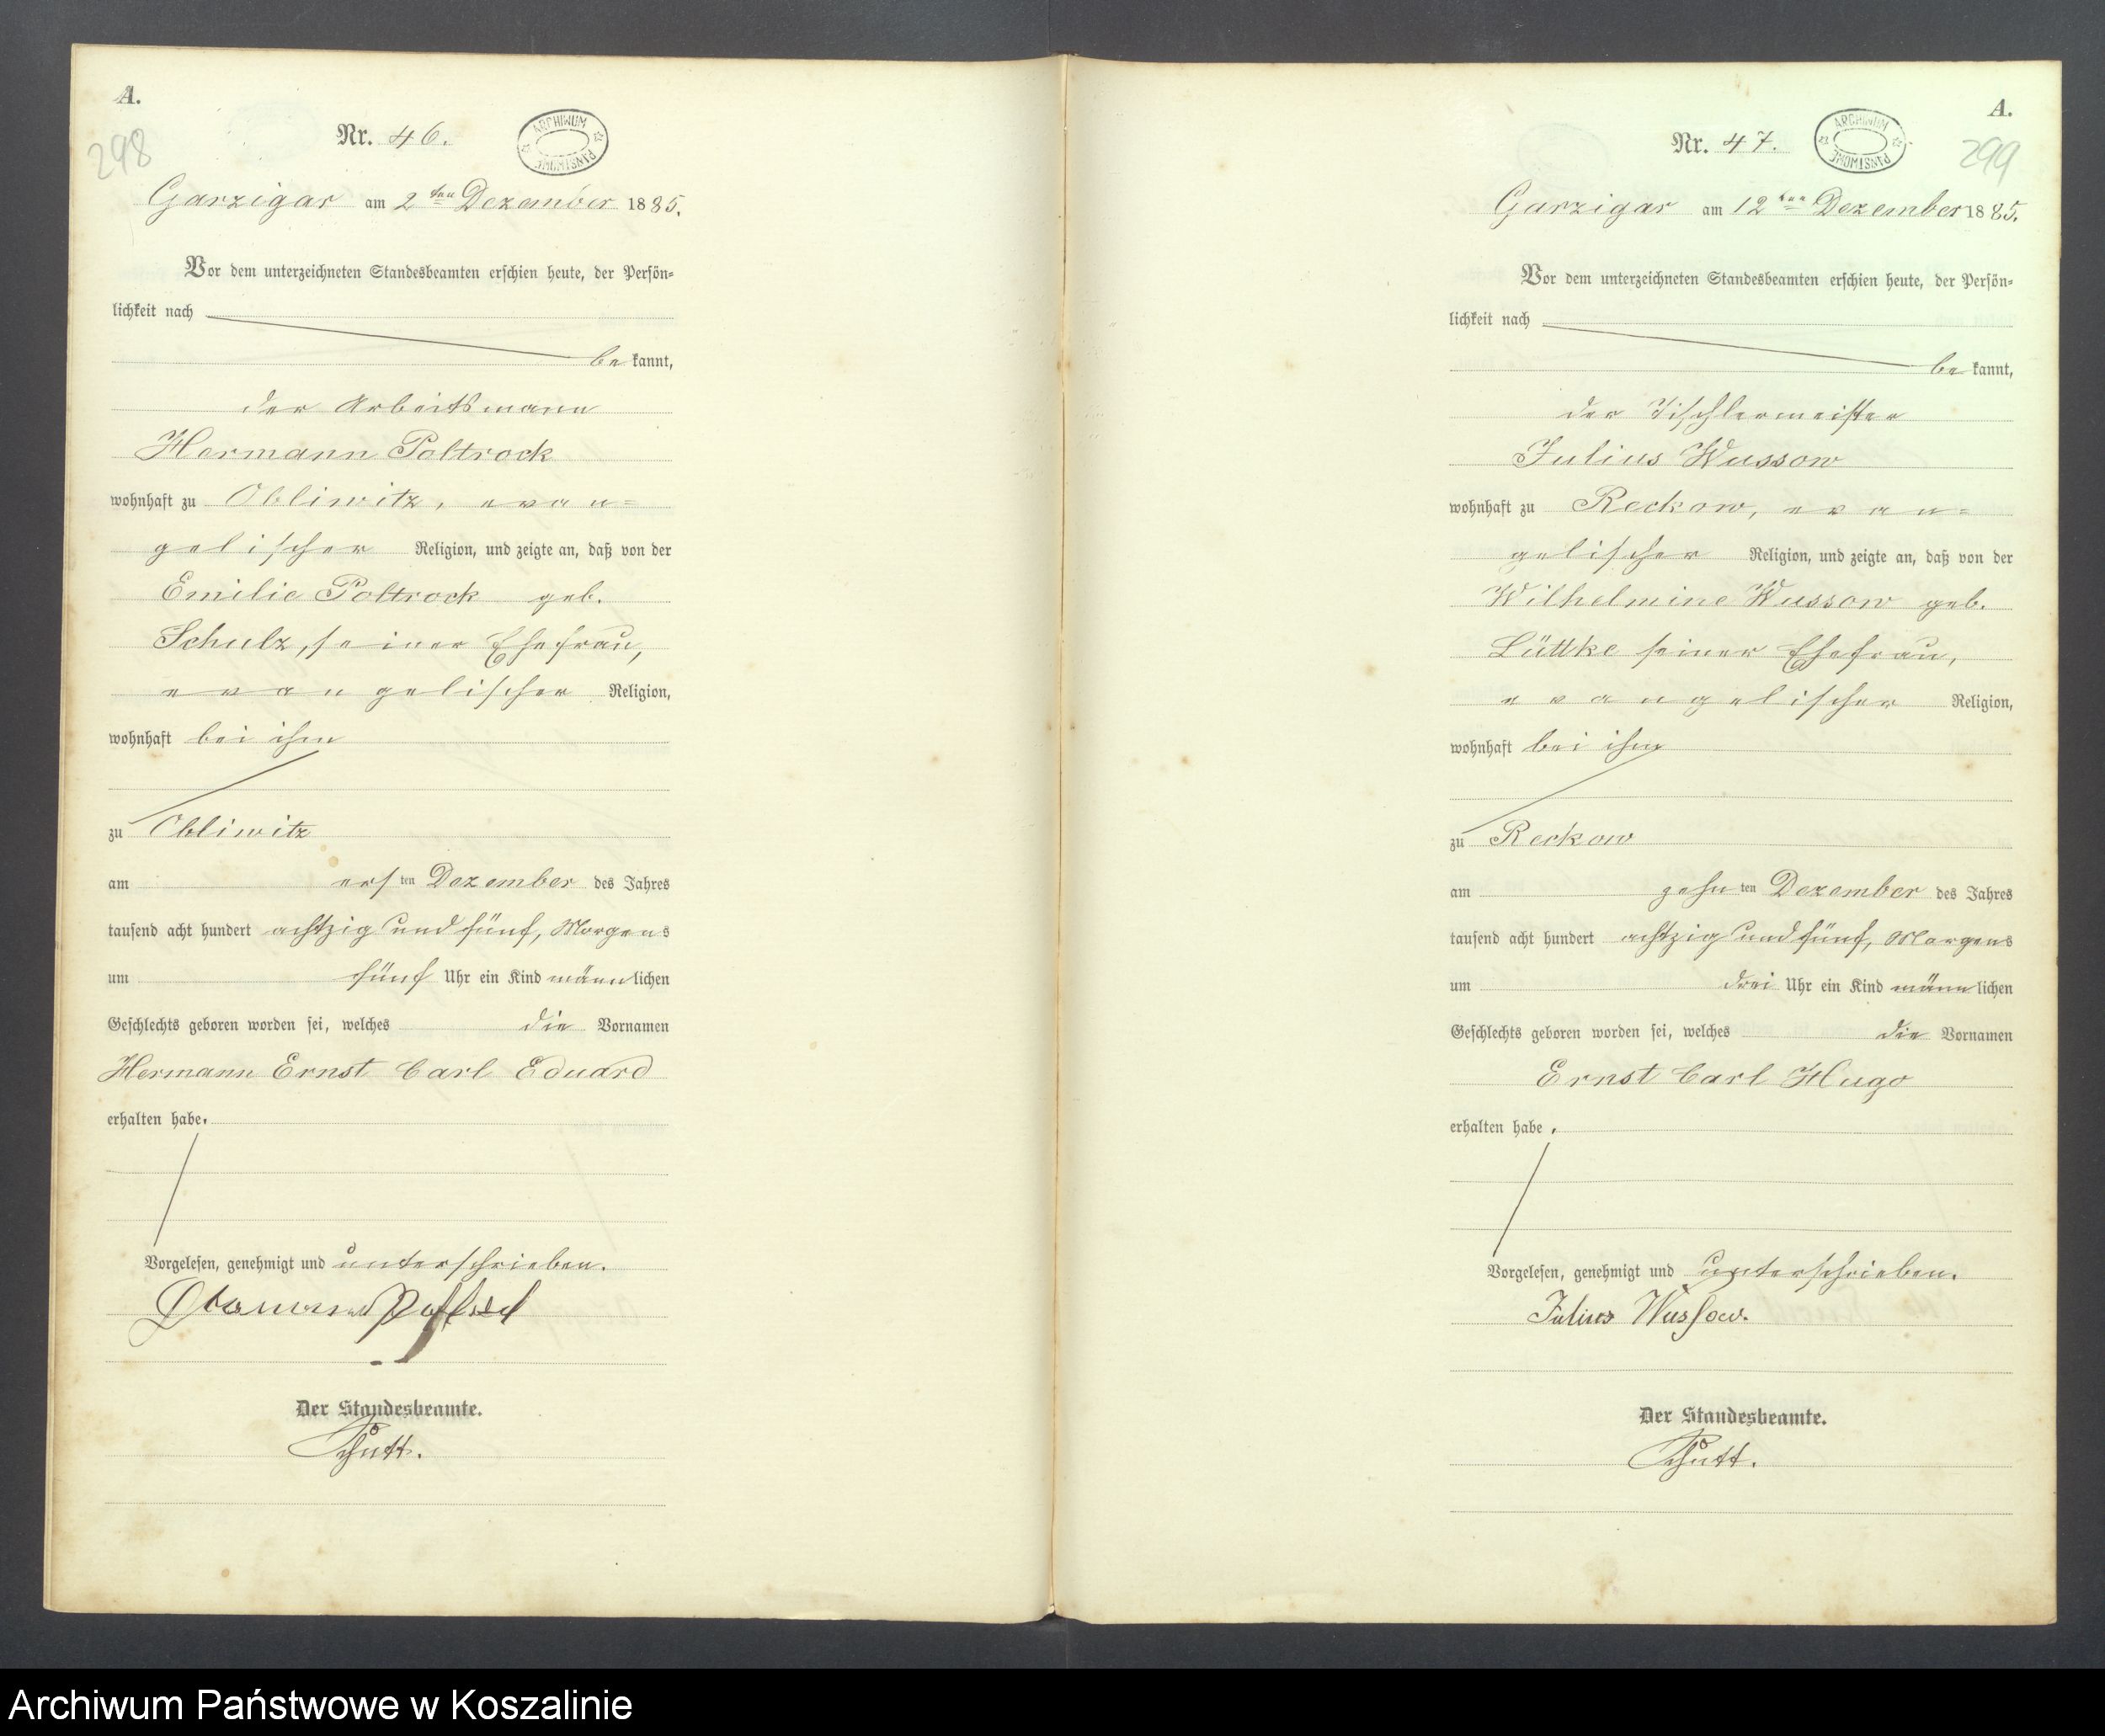 A.
298
Nr. 46.
ARCHIWUM PAŃSTWOWE
Garzigar am 2ten Dezember 1885.
Vor dem unterzeichneten Standesbeamten erschien heute, der Persön=
lichkeit nach
be kannt,
der Arbeitsmann
Hermann Poltrock
wohnhaft zu Obliwitz, evan=
gelischer Religion, und zeigte an, daß von der
Emilie Poltrock geb.
Schulz, seiner Ehefrau,
evangelischer Religion,
wohnhaft bei ihm
zu Obliwitz
am ersten Dezember des Jahres
tausend acht hundert achtzig und fünf, Morgens
um fünf Uhr ein Kind männlichen
Geschlechts geboren worden sei, welches die Vornamen
Hermann Ernst Carl Eduard
erhalten habe.
Vorgelesen, genehmigt und unterschrieben.
Der Standesbeamte.
Schutt.
A.
299
Nr. 47.
ARCHIWUM PAŃSTWOWE
Garzigar am 12ten Dezember 1885.
Vor dem unterzeichneten Standesbeamten erschien heute, der Persön=
lichkeit nach
be kannt,
der Tischlermeister
Julius Wussow
wohnhaft zu Reckow, evan=
gelischer Religion, und zeigte an, daß von der
Wilhelmine Wussow geb.
Lüttke seiner Ehefrau,
evangelischer Religion,
wohnhaft bei ihm
zu Reckow
am zehnten Dezember des Jahres
tausend acht hundert achtzig und fünf, Morgens
um drei Uhr ein Kind männlichen
Geschlechts geboren worden sei, welches die Vornamen
Ernst Carl Hugo
erhalten habe.
Vorgelesen, genehmigt und unterschrieben.
Julius Wussow.
Der Standesbeamte.
Schutt.
Archiwum Państwowe w Koszalinie